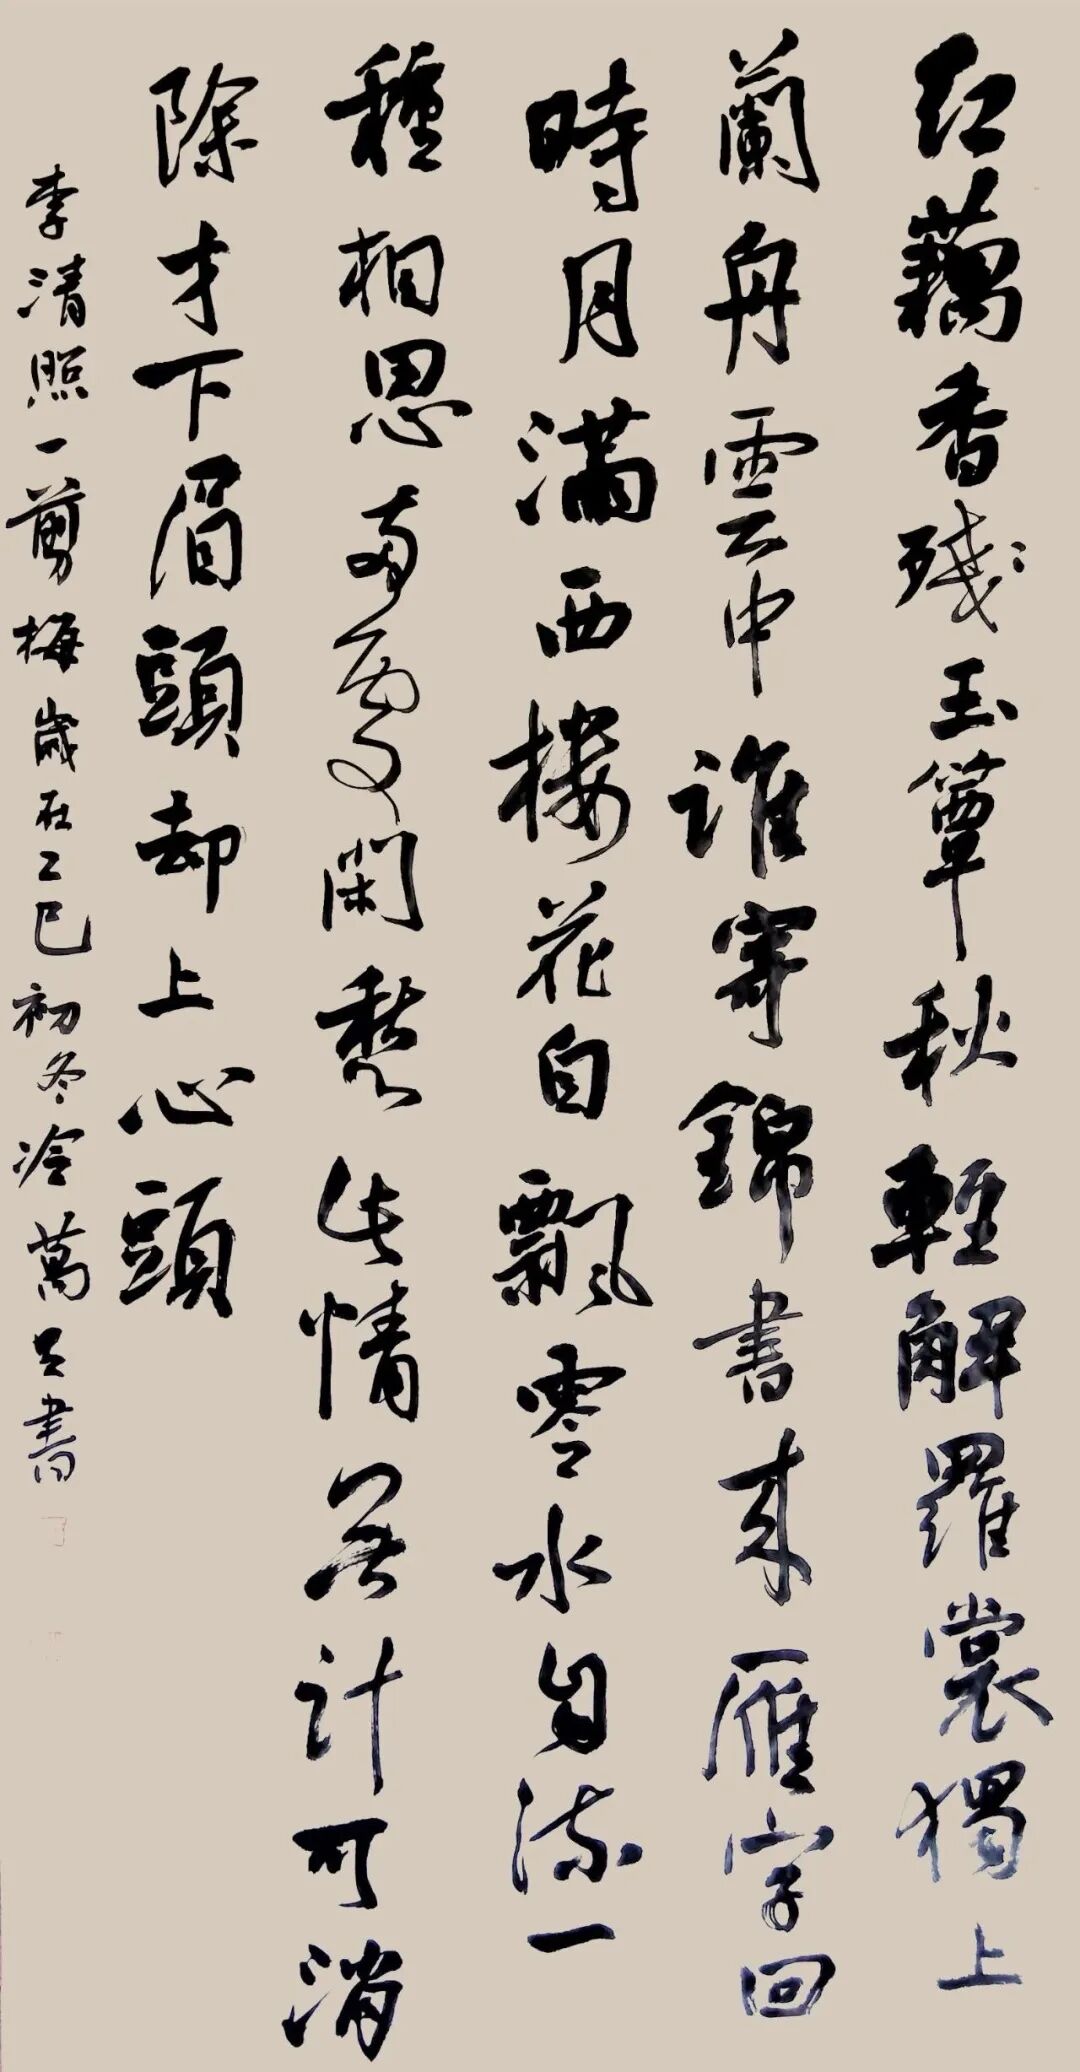 红藕香残玉簟秋輕解羅裳獨上
蘭舟雲中誰寄錦書來雁字回
時月滿西樓花自飄零水自流一
種相思兩處閑愁此情無計可消
除才下眉頭却上心頭
李清照一剪梅歲在乙巳初冬冷萬呈書